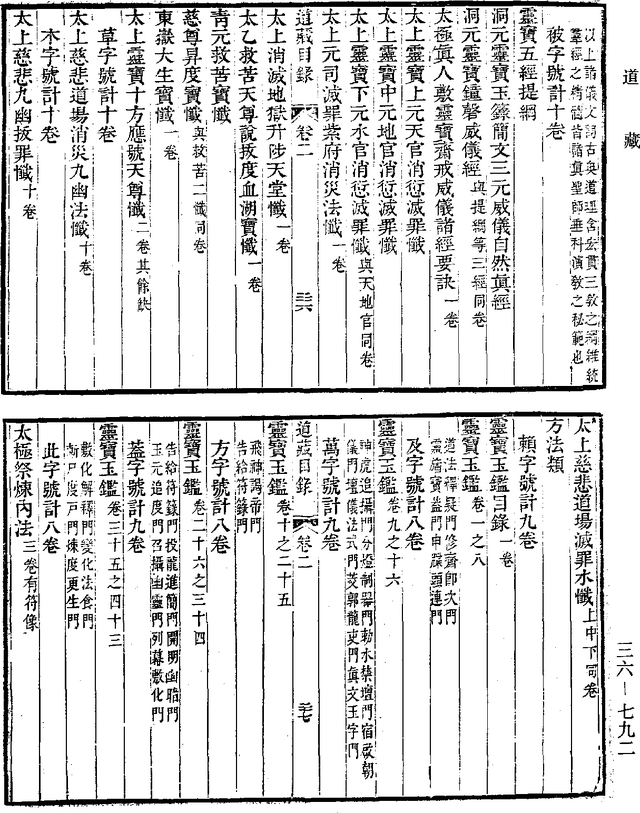 道藏
以上諸儀文詞古奧道理含宏貫三教之綱維統
羣經之精髓皆諸眞聖師垂科演教之秘範也
被字號計十卷
靈寶五經提綱
洞元靈寶玉籙簡文三元威儀自然眞經
洞元靈寶鐘磬威儀經與提綱等三經同卷
太極眞人敷靈寶齋戒威儀諸經要訣一卷
太上靈寶上元天官消愆滅罪懺
太上靈寶中元地官消愆滅罪懺
太上靈寶下元水官消愆滅罪懺與天地官同卷
太上元司滅罪紫府消災法懺一卷
道藏目錄 卷二 三六
太上消滅地獄升陟天堂懺一卷
太乙救苦天尊說拔度血湖寶懺一卷
靑元救苦寶懺
慈尊昇度寶懺與救苦二懺同卷
東嶽大生寶懺一卷
太上靈寶十方應號天尊懺二卷其餘缺
草字號計十卷
太上慈悲道場消災九幽法懺十卷
木字號計十卷
太上慈悲九幽拔罪懺十卷
太上慈悲道場滅罪水懺上中下同卷
方法類
賴字號計九卷
靈寶玉鑑目錄一卷
靈寶玉鑑卷一之八
道法釋疑門修齋節次門
靈旛寶蓋門申牒頭連門
及字號計八卷
靈寶玉鑑卷九之十六
神虎追攝門分燈制器門勅水禁壇門宿啟朝
儀門壇儀法式門芟郭龍吏門眞文玉字門
萬字號計九卷
道藏目錄 卷二 三七
靈寶玉鑑卷十之二十五
飛神謁帝門
告給符籙門
方字號計八卷
靈寶玉鑑卷二十六之三十四
告給符籙門投龍進簡門開明幽暗門
玉元追度門召攝幽靈門列幕敷化門
蓋字號計九卷
靈寶玉鑑卷三十五之四十三
敷化解釋門變化法食門
漸尸度戸門煉度更生門
此字號計八卷
太極祭煉內法三卷有符像
三六—七九二